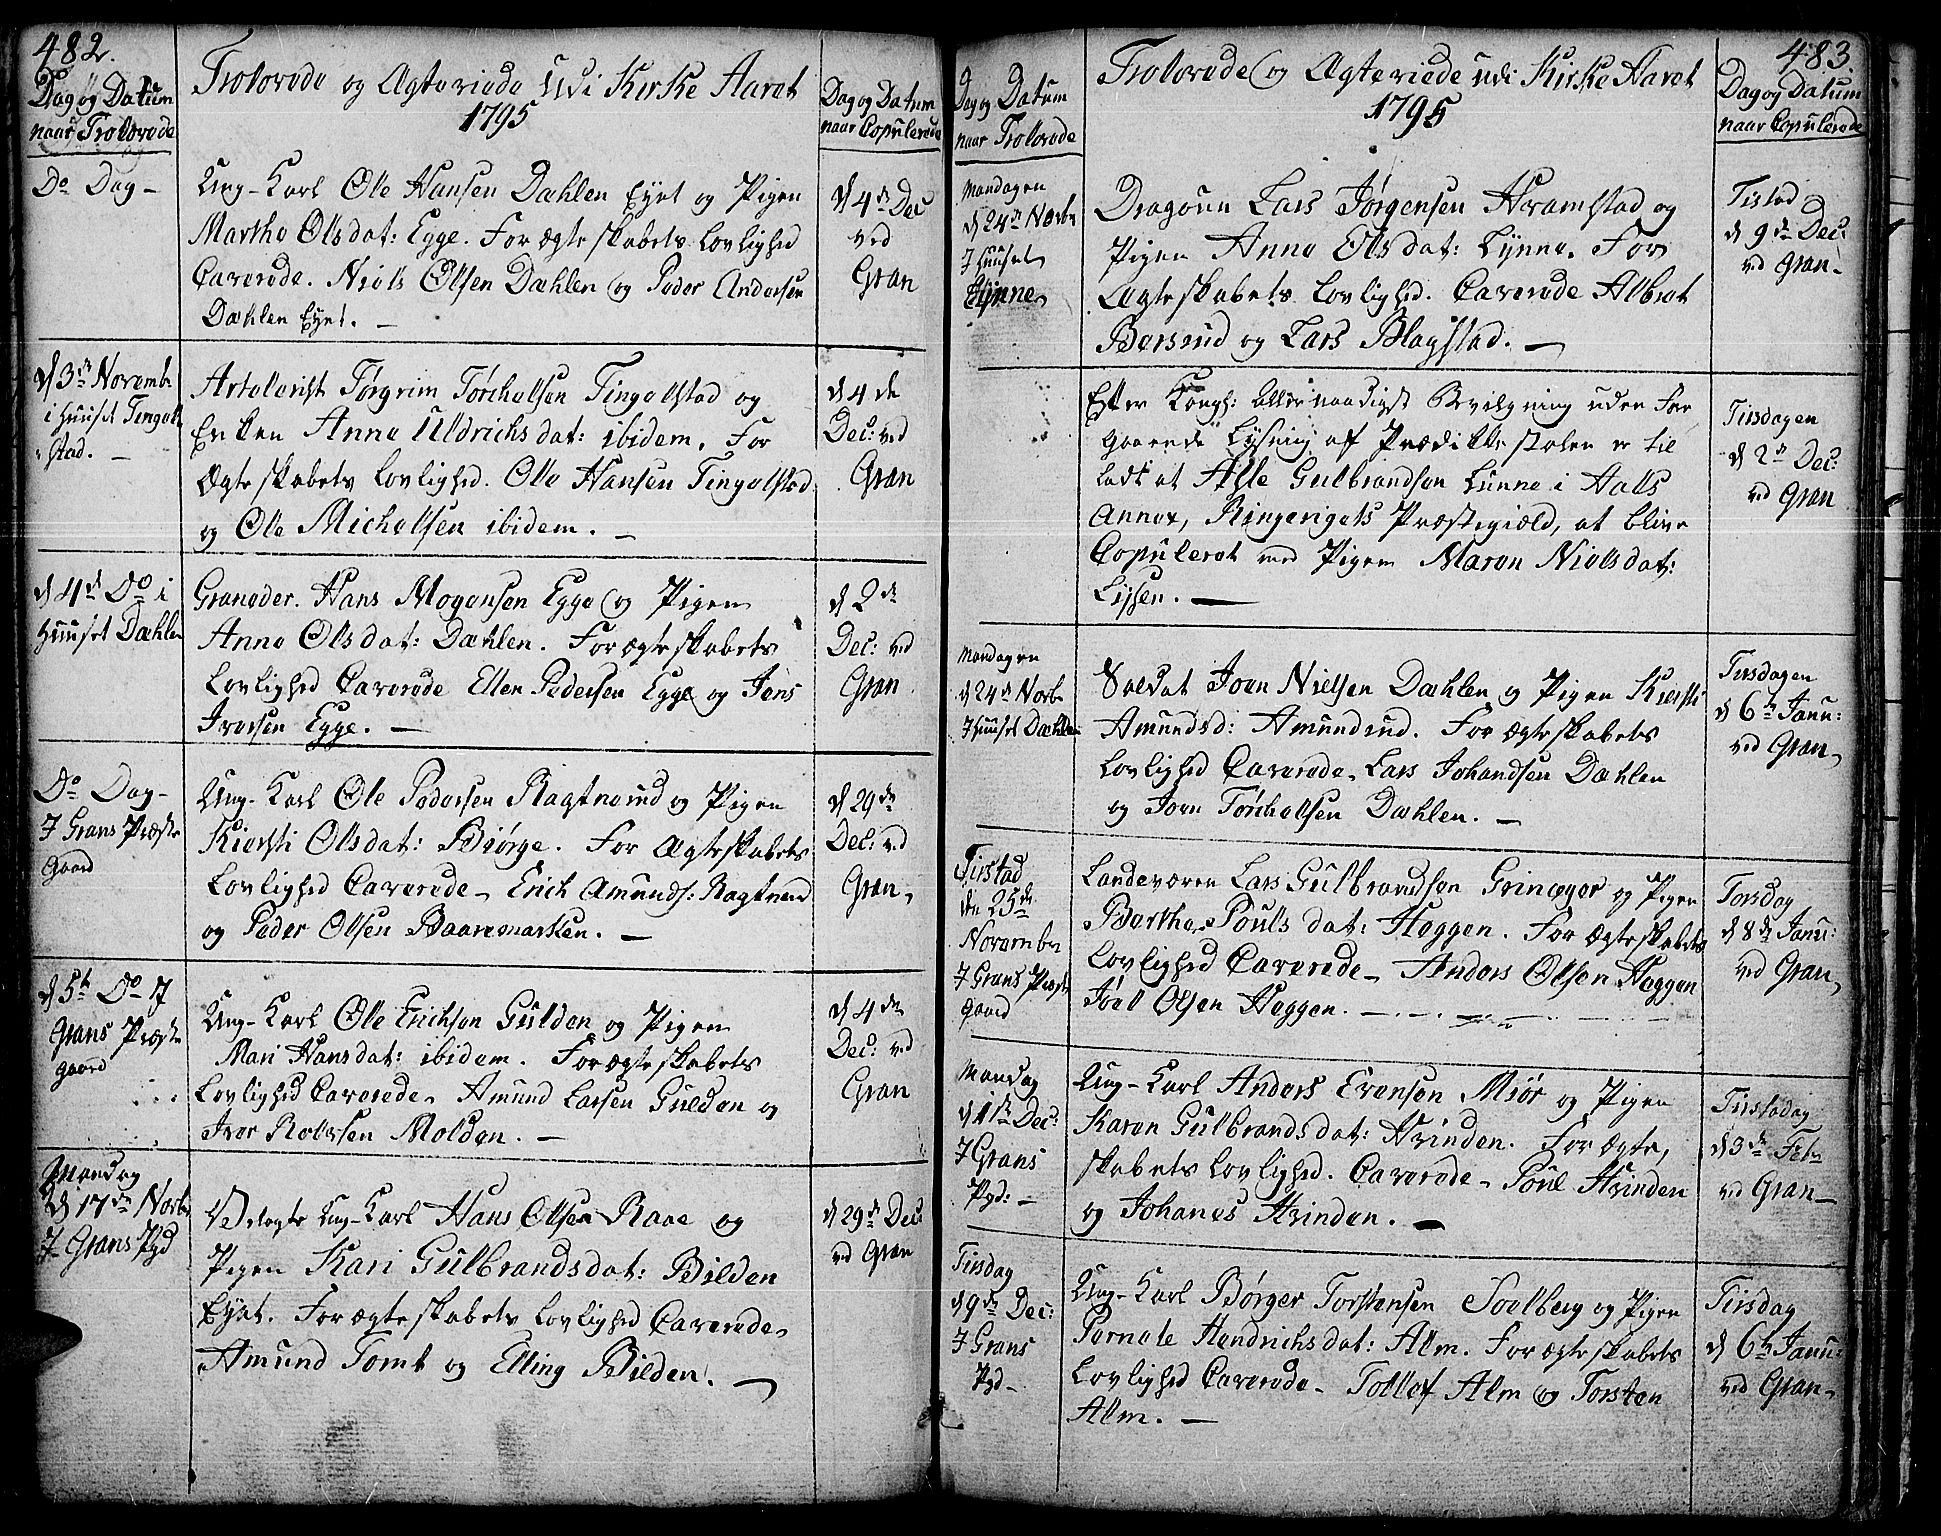 482.
Dag og Datum
naar Trolovede
Trolovede og Ægteviede Udi Kirke Aaret
1795
Dag og Datum
naar Copulerede
Do Dag -
Ung-Karl Ole Hansen Dæhlen Eyet og Pigen
Marthe Olsdat: Egge. For ægteskabets Lovlighed
Caverede. Niels Olsen Dæhlen og Peder Andersen
Dæhlen Eyet. -
d 4de Dec
ved
Gran
d 3de Novembr
i Huuset Tingel-
stad. -
Artolerist Torgrim Torchelsen Tingelstad og
Enken Anne Uldrichsdat: ibidem. For
Ægteskabets Lovlighed. Ole Hansen Tingelstad
og Ole Michelsen ibidem. -
d 4de
Dec: ved
Gran
d 4de Do i
Huuset Dæhlen
Granader. Hans Mogensen Egge og Pigen
Anne Olsdat: Dæhlen. For ægteskabets
Lovlighed Caverede Ellen Pedersen Egge og Jens
Iversen Egge. -
d 2de
Dec: ved
Gran
Do Dag -
I Grans Præste
Gaard
Ung-Karl Ole Pedersen Ragtneid og Pigen
Kiersti Olsdat: Biørge. For Ægteskabets
Lovlighed Caverede - Erich Amunds: Ragtneid
og Peder Olsen Baaremarken. -
d 29de
Dec: ved
Gran,
d 5te Do I
Grans Præste
gaard
Ung-Karl Ole Erichsen Gulden og Pigen
Mari Hansdat: ibidem. For ægteskabets
Lovlighed Caverede - Amund Larsen Gulden og
Iver Rolvsen Molden. -
d 4de
Dec: ved
Gran
Mandag
d 17de Novbr
I Grans Pgd
Vedtagte Ung-Karl Hans Olsen Raae og
Pigen Kari Gulbrandsdat: Bilden
Eyet. For ægteskabets Lovlighed Caverede,
Amund Tomt og Elling Bilden. -
d 29de Dec:
ved Gran
483.
Dag og Datum
naar Trolovede
Trolovede og Ægteviede udi Kirke Aaret
1795
Dag og Datum
naar Copulerede
Mandagen
d 24de Novbr
I Huuset
Lynne
Dragoun Lars Jørgensen Hramstad og
Pigen Anne Olsdat: Lynne. For
Ægteskabets Lovlighed. Caverede Albret
Bersvud og Lars Blagstad. -
Tisdag
d 9de Dec:
ved Gran -
Efter Kongl: allernaadigst Bevilgning uden For
gaaende Lysning aff Prædikkestolen er til
ladt at Alle Gulbrandsen Lunne i Aalls
Annex, Ringerigets Præstegiæld, at blive
Copuleret med Pigen Maren Nielsdat:
Lysen. -
Tirsdagen
d 2de Dec:
ved Gran
Mandagen
d 24de Novbr
I Huuset Dæhlen
Soldat Joen Nielsen Dæhlen og Pigen Kiersti
Amundsd: Amundrud. For ægteskabets
Lovlighed Caverede, Lars Johandsen Dæhlen
og Joen Torchelsen Dæhlen. -
Tirsdagen
d 6te Janu:
ved Gran,
Tirsdag
den 25de
Novembr
I Grans Præste
Gaard
Landeværen Lars Gulbrandsen Grinager og Pigen
Berthe Pouls dat: Heggen. For ægteskabets
Lovlighed Caverede - Anders Olsen Heggen
Joel Olsen Heggen. -
Torsdag
d 8de Janu:
ved Gran,
Mandag
d 1ste Dec:
I Grans
Pgd: -
Ung-Karl Anders Evensen Miør og Pigen
Karen Gulbrandsdat: Hvinden. For ægte,
skabets Lovlighed. Caverede - Poul Hvinden
og Johanes Hvinden. -
Tirsdag
d 3de Febr
ved Gran -
Tirsdag
d 9de Dec:
I Grans
Pgd -
Ung-Karl Børger Torstensen Soelberg og Pigen
Pernele Hendrichsdat: Alm. For ægteskabets
Lovlighed Caverede - Tollef Alm og Torsten
Alm. -
Tirsdag
d 6te Janu:
ved Gran,